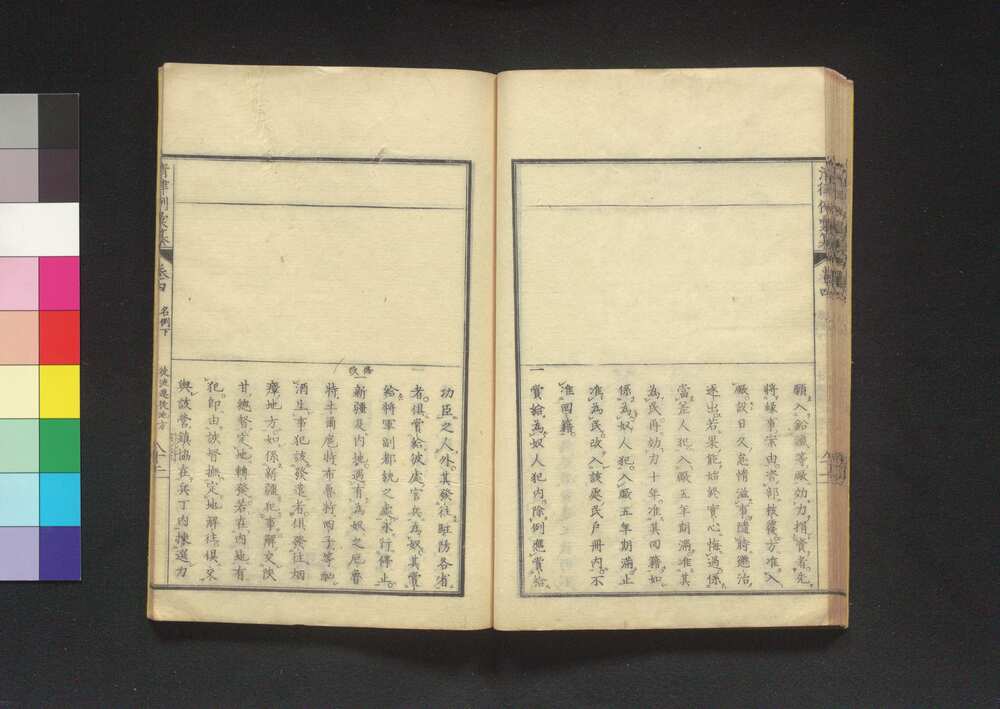 願入鉛鐵等厰効力捐資者先
將緣事案由咨部核覆方准入
厰設日久怠惰滋事隨時懲治
逐出若果能始終實心悔過係
當差人犯入厰五年期滿准其
為民再効力十年准其回籍如
係為奴人犯入厰五年期滿止
准為民改入該處民戶冊内不
准回籍
一賞給為奴人犯内除例應賞給
功臣之人外其發往駐防各省
者俱賞給彼處官兵為奴其賞
給將軍副都統之處永行停止
一新疆及内地遇有為奴之厄魯
特土爾扈特布魯特回子等酗
酒生事犯該發遣者俱發往烟
瘴地方如係新疆犯事解交陝
甘總督定地轉發若在内地有
犯即由該督撫定地解往俱交
與該營鎮協在兵丁内揀選力
清律例彙纂
卷四
名例下
徒流遷徙地方